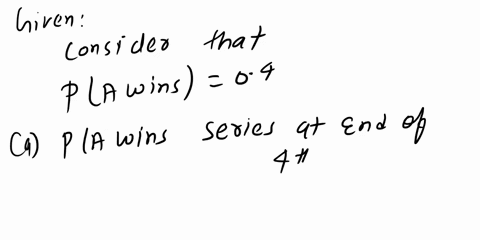 Given:
Consider that
P(A wins) = 0.4
(a) P(A wins series at end of
4th